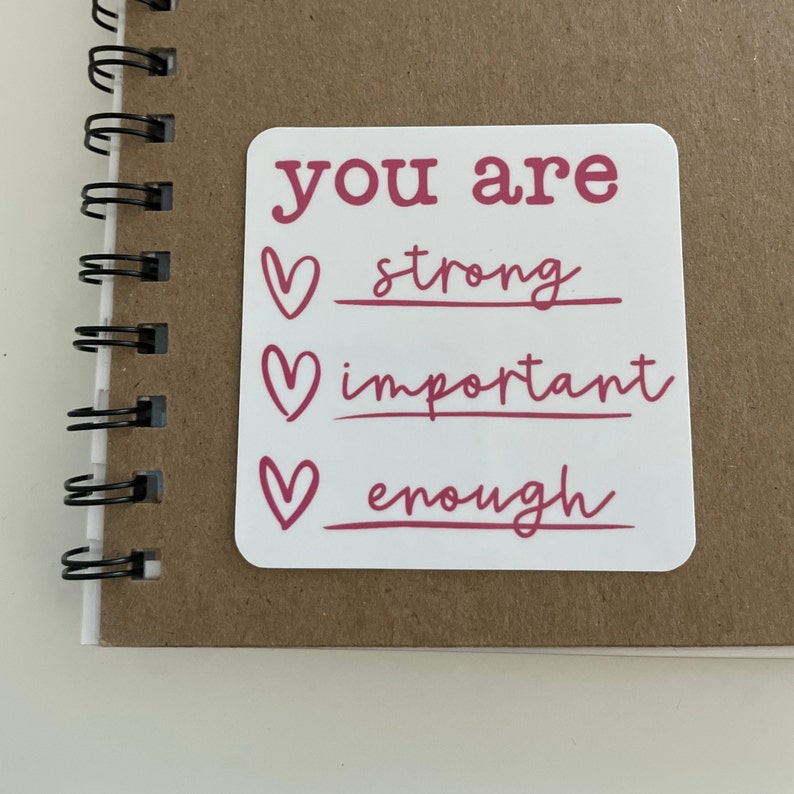 you are
strong
important
enough